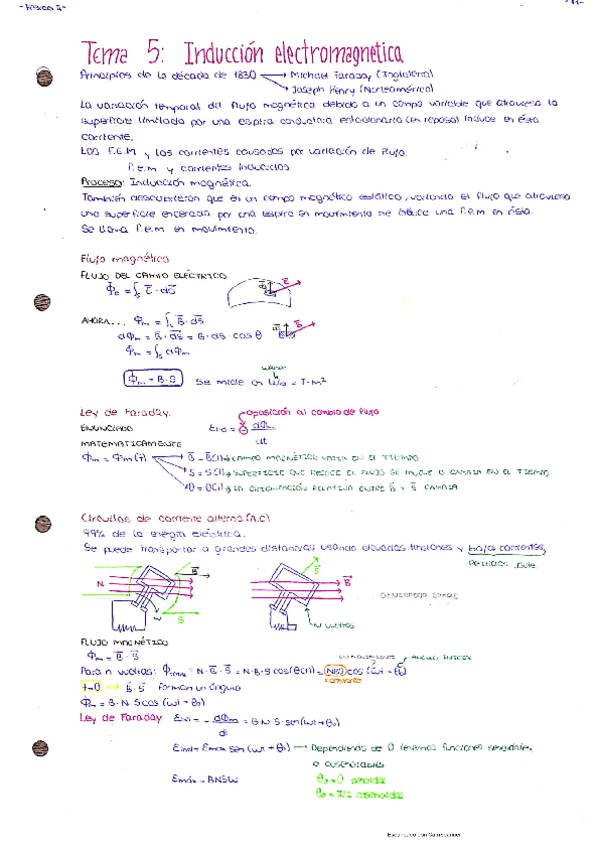 - FÍSICA II -
Tema 5: Inducción electromagnética
Principios de la década de 1830 → Michael Faraday (Inglaterra)
→ Joseph Henry (Norteamérica)
La variación temporal del flujo magnético debido a un campo variable que atraviesa la
superficie limitada por una espira conductora estacionaria (en reposo) induce en ésta
corriente.
LOS F.E.M y las corrientes causadas por variación de flujo.
f.e.m y corrientes inducidas
Proceso: Inducción magnética.
También descubrieron que en un campo magnético estático, variando el flujo que atraviesa
una superficie encerrada por una espira en movimiento se induce una f.e.m en ésta.
Se llama f.e.m en movimiento.
Flujo magnético
FLUJO DEL CAMPO ELÉCTRICO
Φe = ∫s E · dS
AHORA... Φm = ∫s B · dS
dΦm = B · dS = B · dS · cos θ
Φm = ∫s dΦm
Φm = B · S Se mide en Wb = T·M²
Ley de Faraday.
oposición al cambio de flujo
ENUNCIADO Eind = - dΦm
dt
MATEMATICAMENTE
Φm = Φm(t) → B = B(t) → CAMPO MAGNÉTICO VARIA EN EL TIEMPO
S = S(t) → SUPERFICIE QUE RECIBE EL FLUJO SE MUEVE O CAMBIA EN EL TIEMPO
θ = θ(t) → LA ORIENTACIÓN RELATIVA ENTRE B y S CAMBIA
Circuitos de corriente alterna (A.C)
99% de la energía eléctrica.
Se puede transportar a grandes distancias usando elevadas tensiones y bajas corrientes,
N B S w
S B
GENERADOR SIMPLE
N VUELTAS
FLUJO MAGNÉTICO
Φm = B · S
Para n vueltas: N · B · S = N·B·S cos(θ(t)) = NBS cos (wt + θ0)
constante
t=0 → B·S forman un ángulo
Φm = B·N·S cos (wt + θ0)
Ley de Faraday Eind = - dΦm = B·N·S·sen(wt + θ0)
dt
Eind = Emax sen (wt + θ0) → Dependiendo de θ tenemos funciones senoidales
o cosenoidales
Emáx = BNSW θ0 = 0 senoidal
θ0 = π/2 cosenoidal
Escaneado con CamScanner